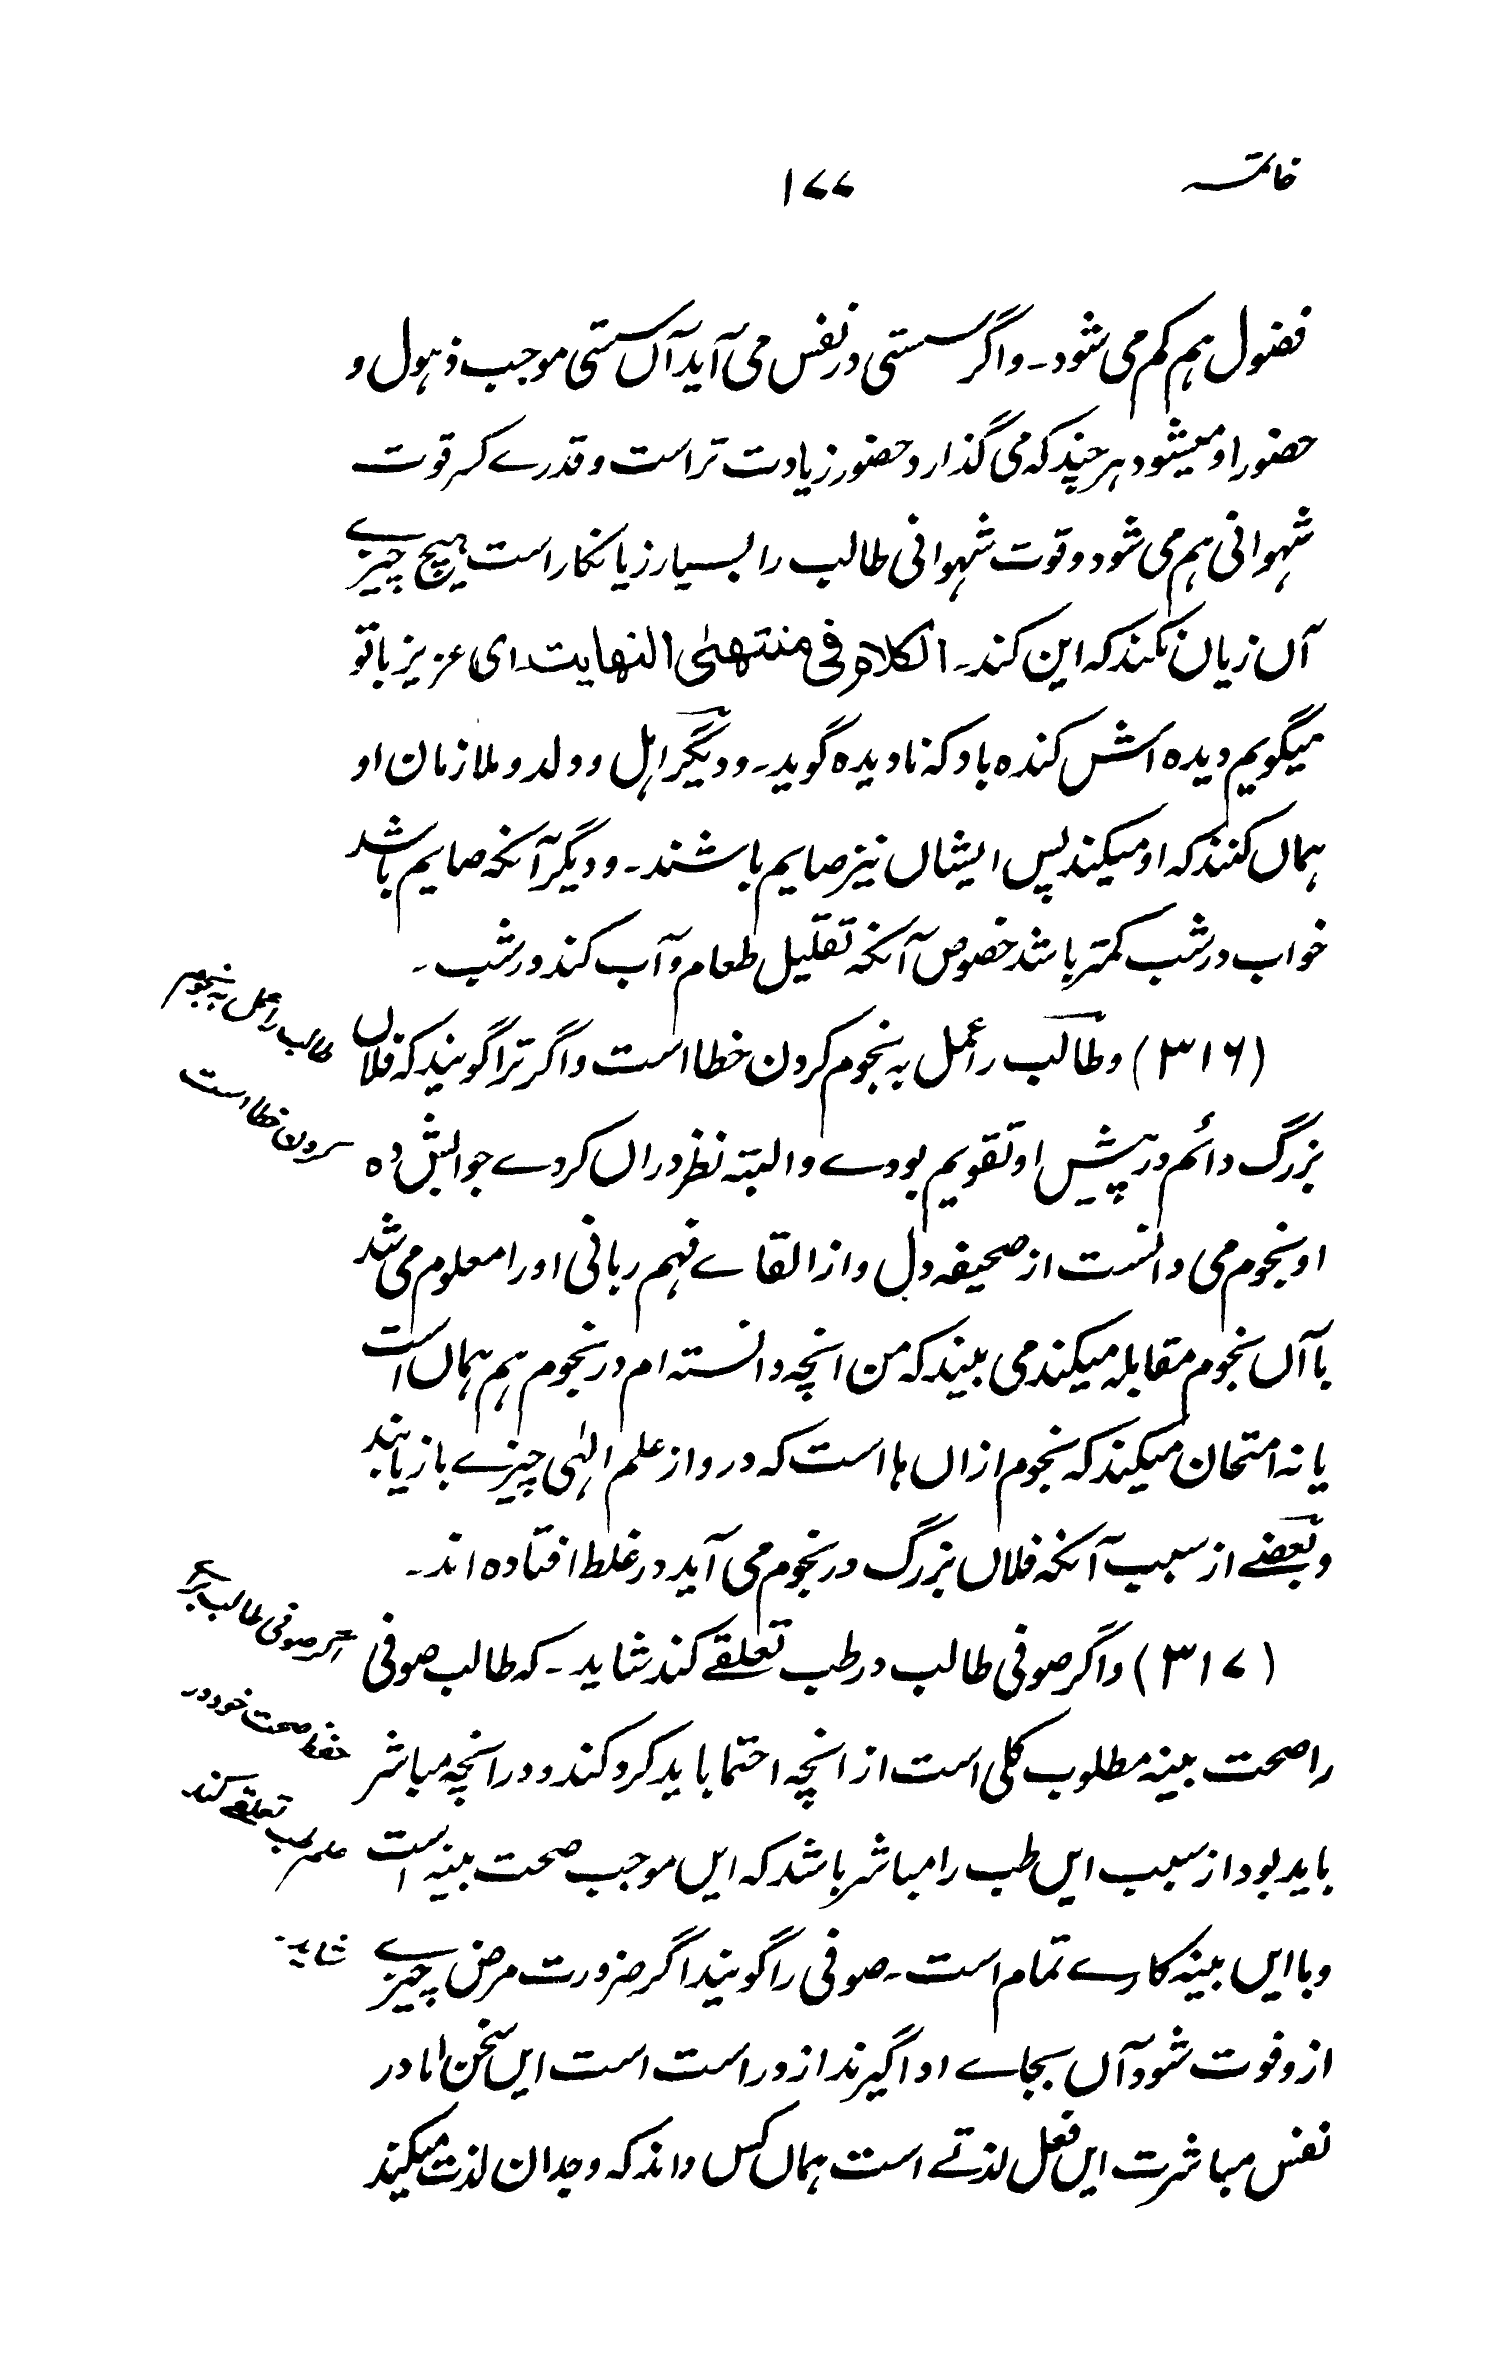 خاتمه
۱۷۷
فضول ہم کم می شود۔ واگر سستی در نفس می آید آں سستی موجب ذہول و
حضور او میشود ہر چند کہ می گذارد حضور زیادت تر است و قدرے کہ قوت
شہوانی ہم می شود و قوت شہوانی طالب را بسیار زیانکار است ہیچ چیزے
آں زیان نکند کہ این کند۔ الکلام فی منتھی النھایت۔ ای عزیز با تو
میگویم دیدہ اش کندہ باد کہ نادیدہ گوید۔ و دیگر اہل و ولد و ملازمان او
ہماں کنند کہ او میکند پس ایشاں نیز صایم باشند۔ و دیگر آنکہ صایم باشد
خواب در شب کمتر باشد خصوص آنکہ تقلیل طعام و آب کند در شب۔
(۳۱۶) و طالب را عمل بہ نجوم کردن خطا است و اگر ترا گویند کہ فلاں
بزرگ دائم در پیش او تقویم بودے و البتہ نظر دراں کردے جوابش دہ
او نجوم می دانست از صحیفہ دل و از القاے فہم ربانی او را معلوم می شد
با آں نجوم مقابلہ میکند می بیند کہ من انچہ دانستہ ام در نجوم ہم ہماں است
یا نہ امتحان میکند کہ نجوم ازاں ہا است کہ درو از علم الہی چیزے بازیابند
و بعضے از سبب آنکہ فلاں بزرگ در نجوم می آید در غلط افتادہ اند۔
(۳۱۷) و اگر صوفی طالب در طب تعلقے کند شاید۔ کہ طالب صوفی
را صحت بینہ مطلوب کلی است از انچہ احتما باید کرد کند و در انچہ مباشر
باید بود از سبب ایں طب را مباشر باشد کہ ایں موجب صحت بینہ است
و با ایں بینہ کارے تمام است۔ صوفی را گویند اگر ضرورت مرض چیزے
ازو فوت شود آں بجاے او اگیرند ازو راست است ایں سخن اما در
نفس مباشرت ایں فعل لذتے است ہماں کس داند کہ وجدان لذت میکند
طالب را عمل بہ نجوم
کردن خطا است
اگر صوفی طالب براے
حفظ صحت خود در
علم طب تعلقے کند
شاید۔